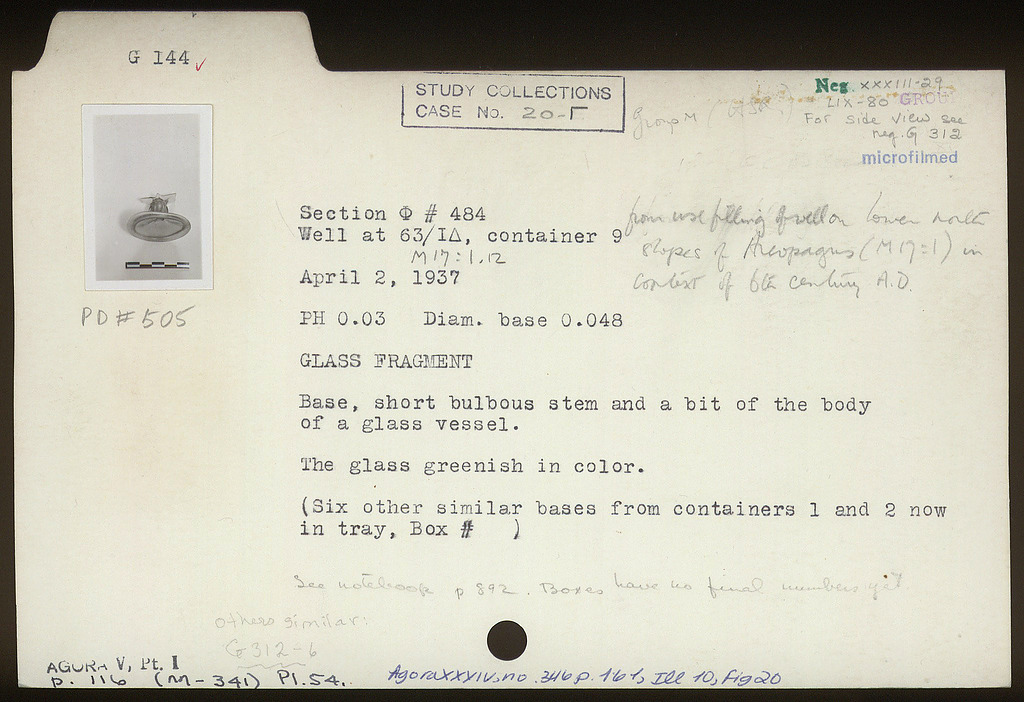 G 144 ✓
STUDY COLLECTIONS
CASE No. 20-Γ
Neg. XXXIII-29
LIX-80 GROU
For side view see
neg. G 312
microfilmed
Group M
Section Φ # 484
Well at 63/ΙΔ, container 9
M 17:1.12
April 2, 1937
from use filling of well on lower north
slopes of Areopagus (M 17:1) in
context of 6th century A.D.
PD # 505
PH 0.03 Diam. base 0.048
GLASS FRAGMENT
Base, short bulbous stem and a bit of the body
of a glass vessel.
The glass greenish in color.
(Six other similar bases from containers 1 and 2 now
in tray, Box # )
See notebook p 892. Boxes have no final numbers yet
Others similar:
G 312-6
AGORA V, Pt. I
p. 116 (M-341) Pl. 54.
Agora XXXIV, no. 346 p. 161, Ill 10, Fig 20